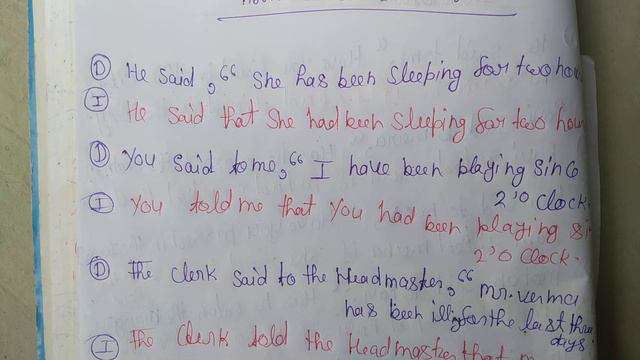 D He said, “ She has been sleeping for two hou
I He said that She had been sleeping for two hour
D You said to me, “ I have been playing since
2 'O Clock
I You told me that You had been playing si
2 'O Clock.
D The Clerk said to the Headmaster, “ Mr. Verma
has been ill for the last three
days.
I The Clerk told the Headmaster that m